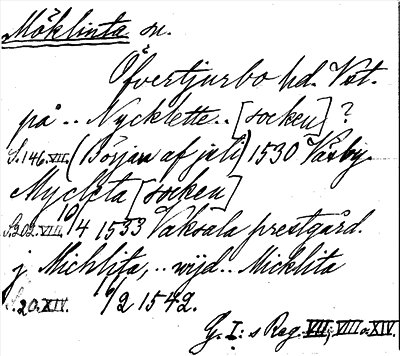 Möklinta sn.
Öfvertjurbo hd. Vst.
på .. Nycklette .. [socken] ?
S. 146. VII. (Början af juli) 1530 Väsby.
Myclita [socken]
S. 202. VIII. 10/4 1533 Vaksala prestgård.
j Michlita, .. wijd .. Micklita
S. 20. XIV. 6/2 1542.
G. I:s Reg. VII; VIII o. XIV.